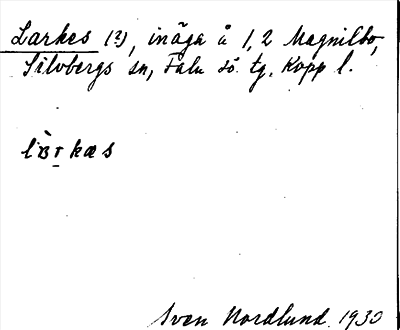 Larkes (?), inäga å 1,2 Magnilbo,
Silvbergs sn, Falu sö. tg. Kopp l.
Sven Nordlund 1930